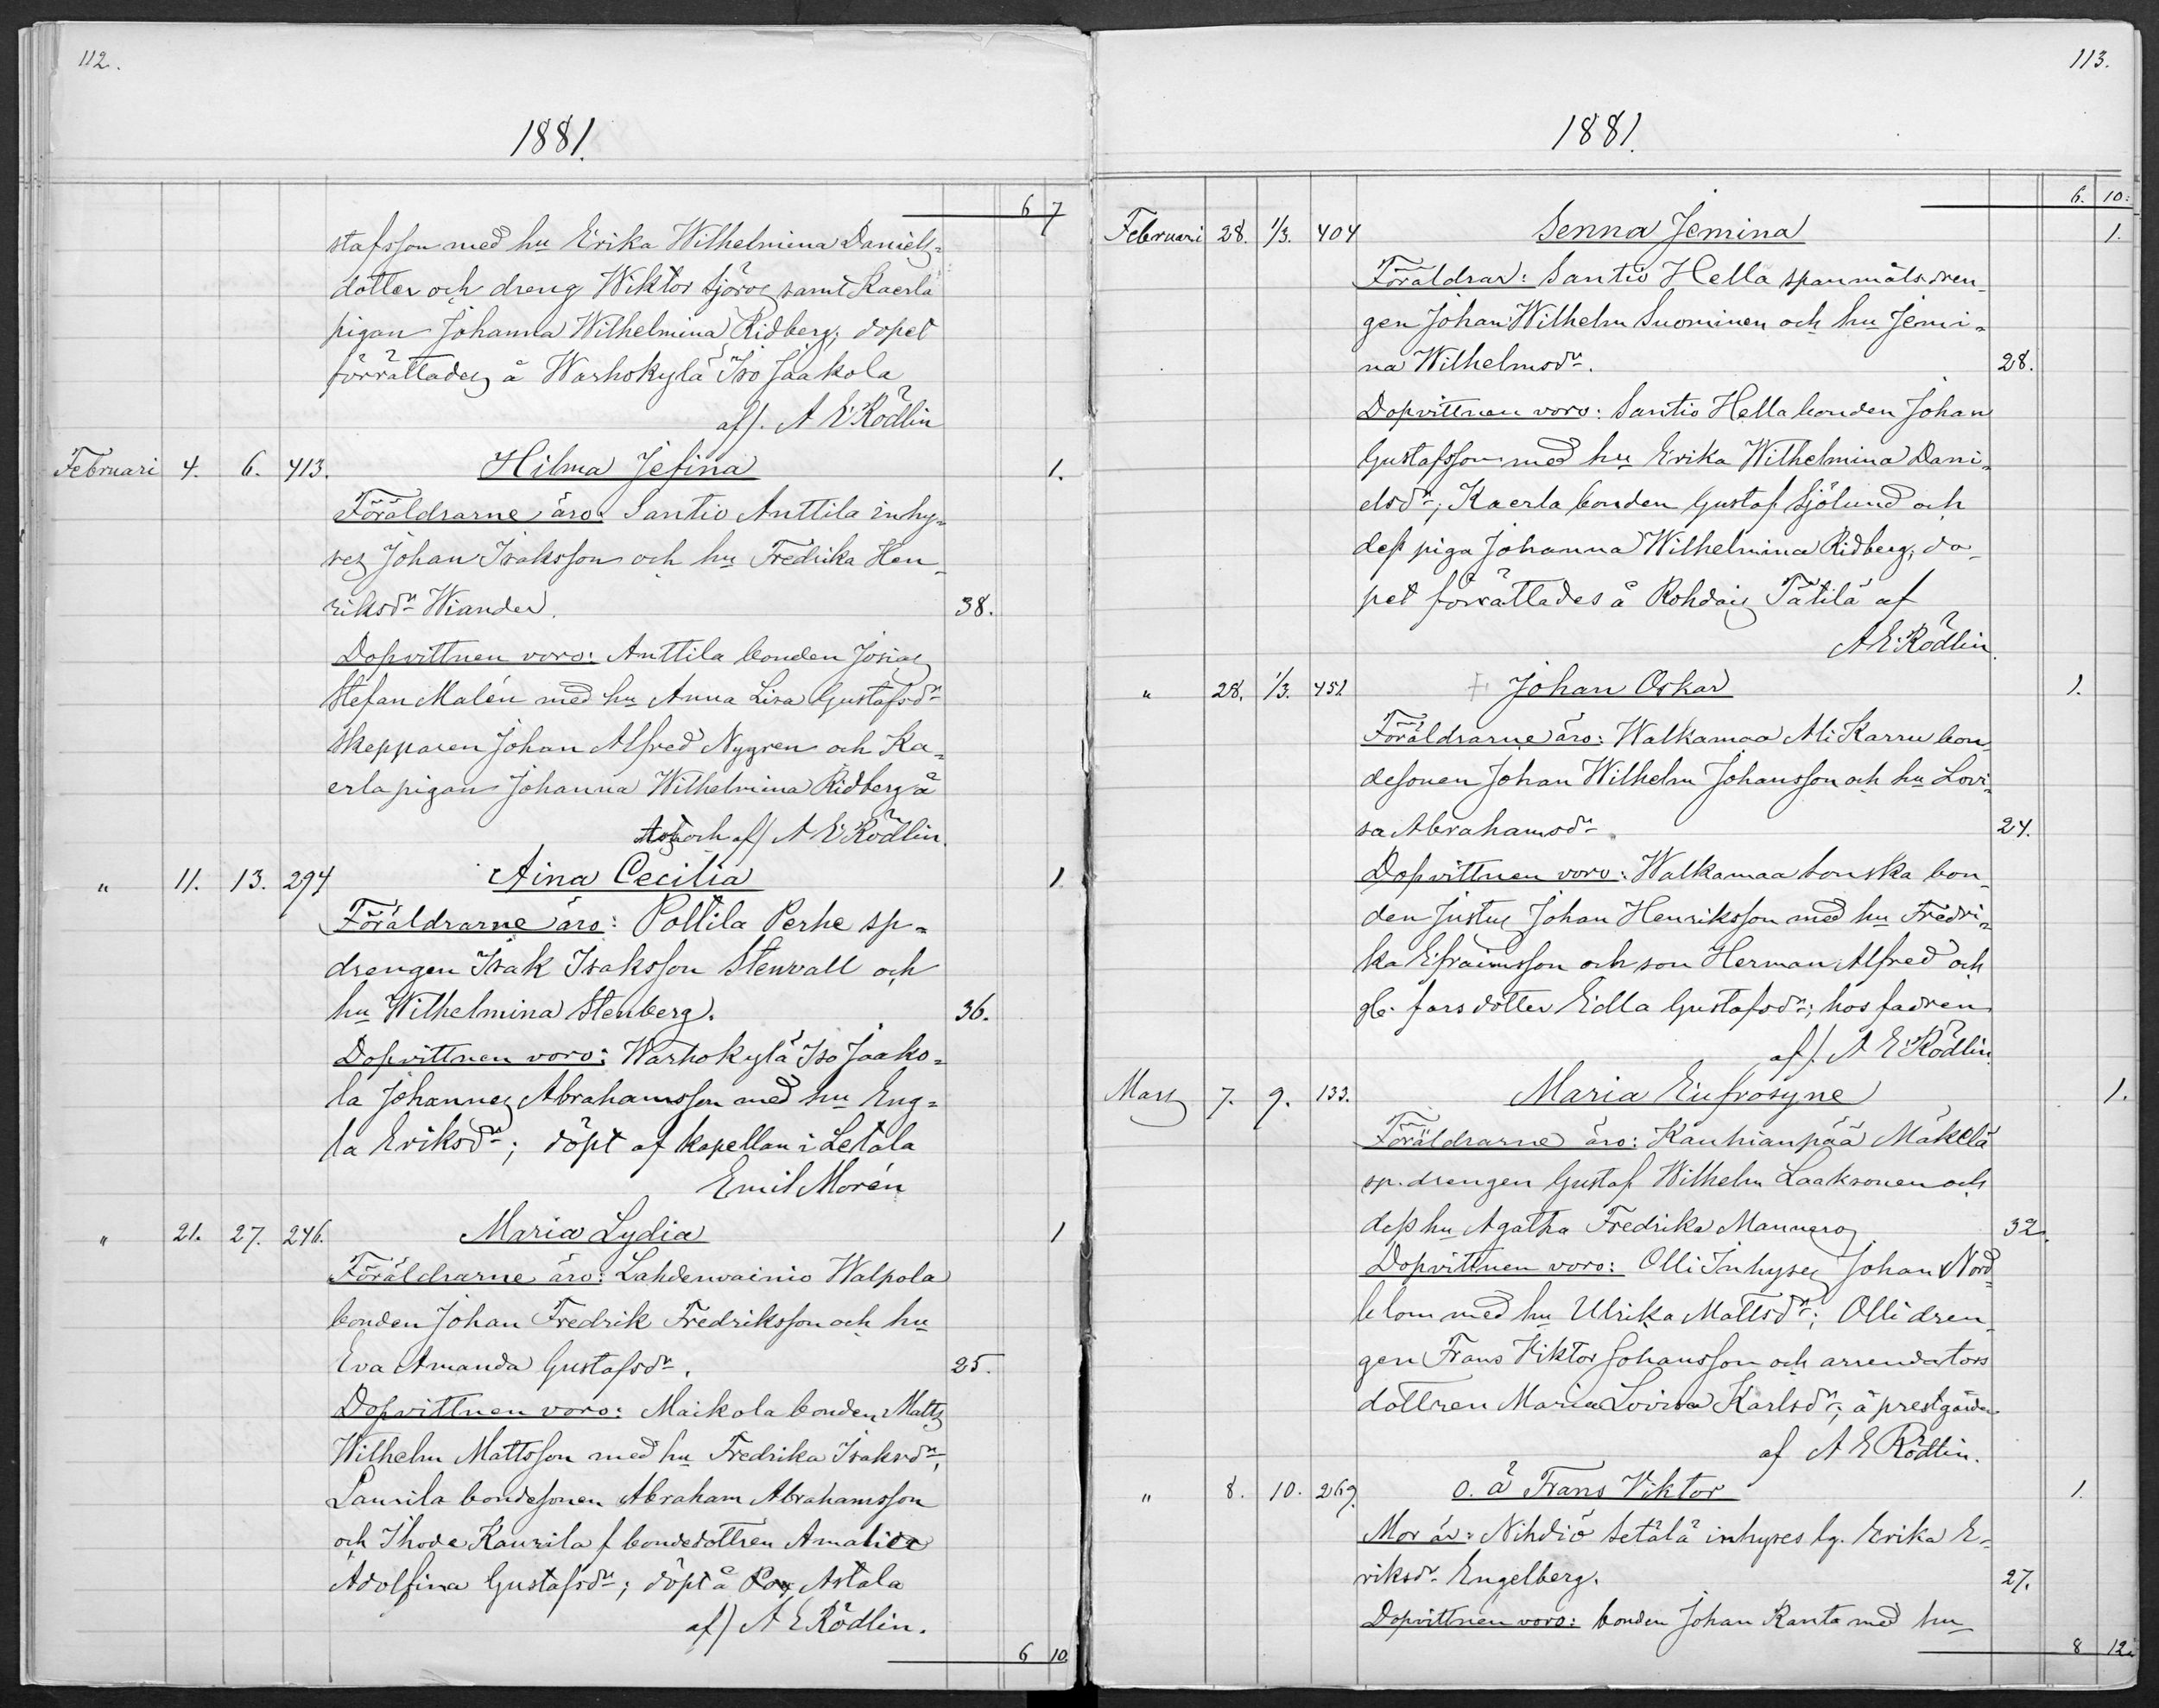 112.
1881.
6 7
stafsson med hu Erika Wilhelmina Daniels-
dotter och dreng Wiktor Sjöros samt Kaerla
pigan Johanna Wilhelmina Ridberg; dopet
förrättades å Warhokylä Iso Jaakola
af/. A E Rödlin
Februari 4. 6. 413. Hilma Jefina 1.
Föräldrarne äro: Santio Anttila inhy-
ses Johan Isaksson och hu Fredrika Hen-
riksdr Wiander. 38.
Dopvittnen voro: Anttila bonden Josias
Stefan Malén med hu Anna Lisa Gustafsdr
Skepparen Johan Alfred Nygren och Ka-
erla pigan Johanna Wilhelmina Ridberg å
och af/ A E Rödlin.
" 11. 13. 294 Aina Cecilia 1
Föräldrarne äro: Polttila Perhe sp-
drengen Isak Isaksson Stenvall och
hu Wilhelmina Stenberg. 36.
Dopvittnen voro: Warhokylä Iso Jaako-
la Johannes Abrahamsson med hu Eng-
la Eriksdr; döpt af kapellan i Letala
Emil Morén
" 21. 27. 246. Maria Lydia 1
Föräldrarne äro: Lahdenvainio Walpola
bonden Johan Fredrik Fredriksson och hu
Eva Amanda Gustafsdr. 25.
Dopvittnen voro: Maikola bonden Matts
Wilhelm Mattsson med hu Fredrika Isaksdr,
Laurila bondesonen Abraham Abrahamsson
och Ihode Kaurila f bondedottren Amalia
Adolfina Gustafsdr; döpt å Astala
af/ A E Rödlin.
6 10
113.
1881.
6. 10.
Februari 28. 1/3. 404 Senna Jemina 1.
Föräldrar: Santio Hella spanmålsdren-
gen Johan Wilhelm Suominen och hu Jemi-
na Wilhelmsdr. 28.
Dopvittnen voro: Santio Hella bonden Johan
Gustafsson med hu Erika Wilhelmina Dani-
elsdr; Kaerla bonden Gustaf Sjölund och
dess piga Johanna Wilhelmina Ridberg; do-
pet förrättades å Rohdais Tätilä af
A E Rödlin.
" 28. 1/3. 451 Johan Oskar 1.
Föräldrarne äro: Walkamaa Ali Karru bon-
desonen Johan Wilhelm Johansson och hu Lovi-
sa Abrahamsdr. 24.
Dopvittnen voro: Walkamaa Sonska bon-
den Justus Johan Henriksson med hu Fredri-
ka Efraimsson och son Herman Alfred och
gb. fars dotter Edla Gustafsdr; hos fadren
af/. A E Rödlin
Mars 7. 9. 133. Maria Eufrosyne 1.
Föräldrarne äro: Kauhianpää Mäkelä
sp. drengen Gustaf Wilhelm Laaksonen och
dess hu Agatha Fredrika Manneros 32.
Dopvittnen voro: Olli Inhyses Johan Nord-
blom med hu Ulrika Mattsdr; Olli dren-
gen Frans Viktor Johansson och arrendators
dottren Maria Lovisa Karlsdr; å prestgården
af A E Rödlin.
" 8. 10. 269. o. ä Frans Viktor 1.
Mor är: Nihdiö Setälä inhyses lg. Erika E-
riksdr Engelberg. 27.
Dopvittnen voro: bonden Johan Ranta med hu
8 12